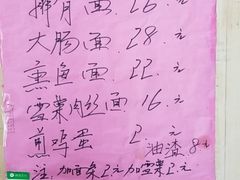 排骨面 26.元
大肠面 28.元
熏鱼面 22.元
雪菜肉丝面 16.元
煎鸡蛋 2.元
油渣 8元
注:加面条2元加雪菜2元